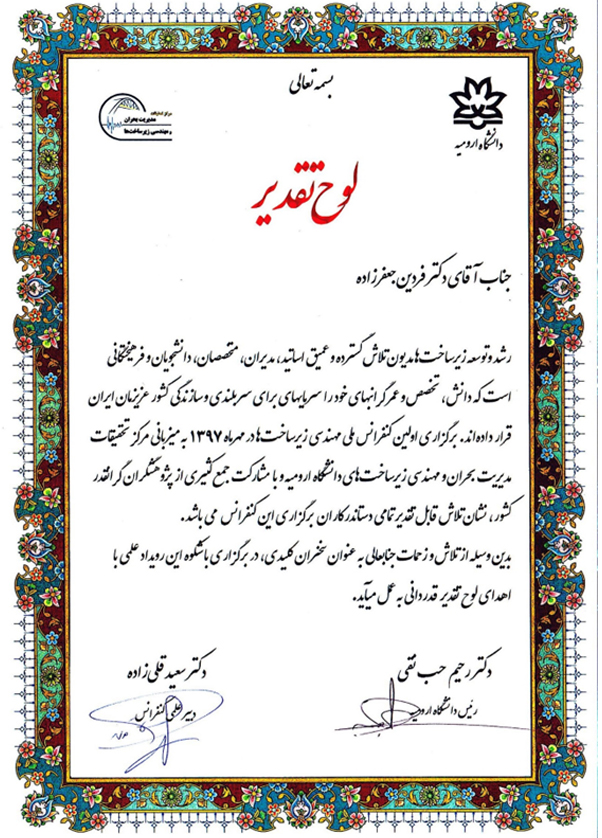 بسمه تعالی
مرکز تحقیقات
مدیریت بحران
و مهندسی زیرساخت‌ها
دانشگاه ارومیه
لوح تقدیر
جناب آقای دکتر فردین جعفرزاده
رشد و توسعه زیرساخت‌ها مدیون تلاش گسترده و عمیق اساتید، مدیران، متخصصان، دانشجویان و فرهیختگانی
است که دانش، تخصص و عمر گرانبهای خود را سرمایه‌ای برای سربلندی و سازندگی کشور عزیزمان ایران
قرار داده‌اند. برگزاری اولین کنفرانس ملی مهندسی زیرساخت‌ها در مهرماه ۱۳۹۷ به میزبانی مرکز تحقیقات
مدیریت بحران و مهندسی زیرساخت‌های دانشگاه ارومیه و با مشارکت جمع کثیری از پژوهشگران گرانقدر
کشور، نشان تلاش قابل تقدیر تمامی دستاندرکاران برگزاری این کنفرانس می باشد.
بدین وسیله از تلاش و زحمات جنابعالی به عنوان سخنران کلیدی، در برگزاری باشکوه این رویداد علمی با
اهدای لوح تقدیر قدردانی به عمل میآید.
دکتر رحیم حب نقی
رئیس دانشگاه ارومیه
دکتر سعید قلی زاده
دبیر علمی کنفرانس